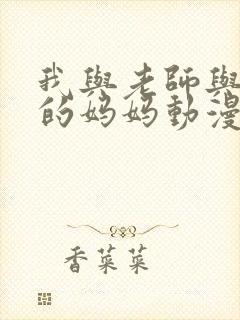 我與老師與
的妈妈動漫
香菜菜